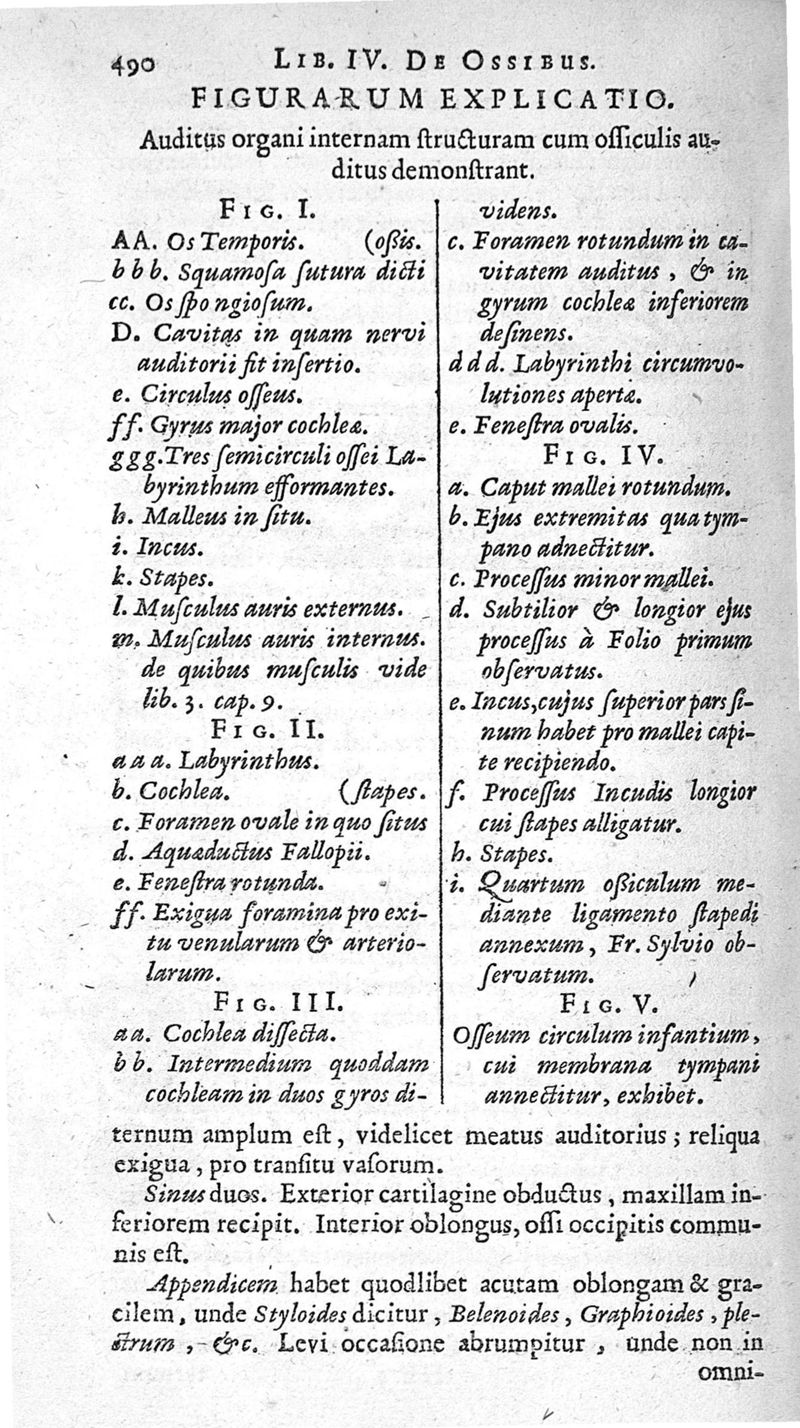 490 LIB. IV. DE OSSIBUS.
FIGURARUM EXPLICATIO.
Auditus organi internam ſtructuram cum oſſiculis au-
ditus demonſtrant.
FIG. I.
AA. Os Temporis. (oßis.
b b b. Squamoſa ſutura dicti
cc. Os ſpongioſum.
D. Cavitas in quam nervi
auditorii fit inſertio.
e. Circulus oſſeus.
ff. Gyrus major cochleæ.
ggg. Tres ſemicirculi oſſei La-
byrinthum efformantes.
h. Malleus in ſitu.
i. Incus.
k. Stapes.
l. Muſculus auris externus.
m. Muſculus auris internus.
de quibus muſculis vide
lib. 3. cap. 9.
FIG. II.
a a a. Labyrinthus.
b. Cochlea. (ſtapes.
c. Foramen ovale in quo ſitus
d. Aquæductus Fallopii.
e. Feneſtra rotunda.
ff. Exigua foramina pro exi-
tu venularum & arterio-
larum.
FIG. III.
aa. Cochlea diſſecta.
b b. Intermedium quoddam
cochleam in duos gyros di-
videns.
c. Foramen rotundum in ca-
vitatem auditus, & in
gyrum cochleæ inferiorem
deſinens.
d d d. Labyrinthi circumvo-
lutiones apertæ.
e. Feneſtra ovalis.
FIG. IV.
a. Caput mallei rotundum.
b. Ejus extremitas qua tym-
pano adnectitur.
c. Proceſſus minor mallei.
d. Subtilior & longior ejus
proceſſus à Folio primum
obſervatus.
e. Incus, cujus ſuperior pars ſi-
num habet pro mallei capi-
te recipiendo.
f. Proceſſus Incudis longior
cui ſtapes alligatur.
h. Stapes.
i. Quartum oßiculum me-
diante ligamento ſtapedi
annexum, Fr. Sylvio ob-
ſervatum.
FIG. V.
Oſſeum circulum infantium,
cui membrana tympani
annectitur, exhibet.
ternum amplum eſt, videlicet meatus auditorius; reliqua
exigua, pro tranſitu vaſorum.
Sinus duos. Exterior cartilagine obductus, maxillam in-
feriorem recipit. Interior oblongus, oſſi occipitis commu-
nis eſt.
Appendicem habet quodlibet acutam oblongam & gra-
cilem, unde Styloides dicitur, Belenoides, Graphioides, ple-
ctrum, &c. Levi occaſione abrumpitur, unde non in
omni-